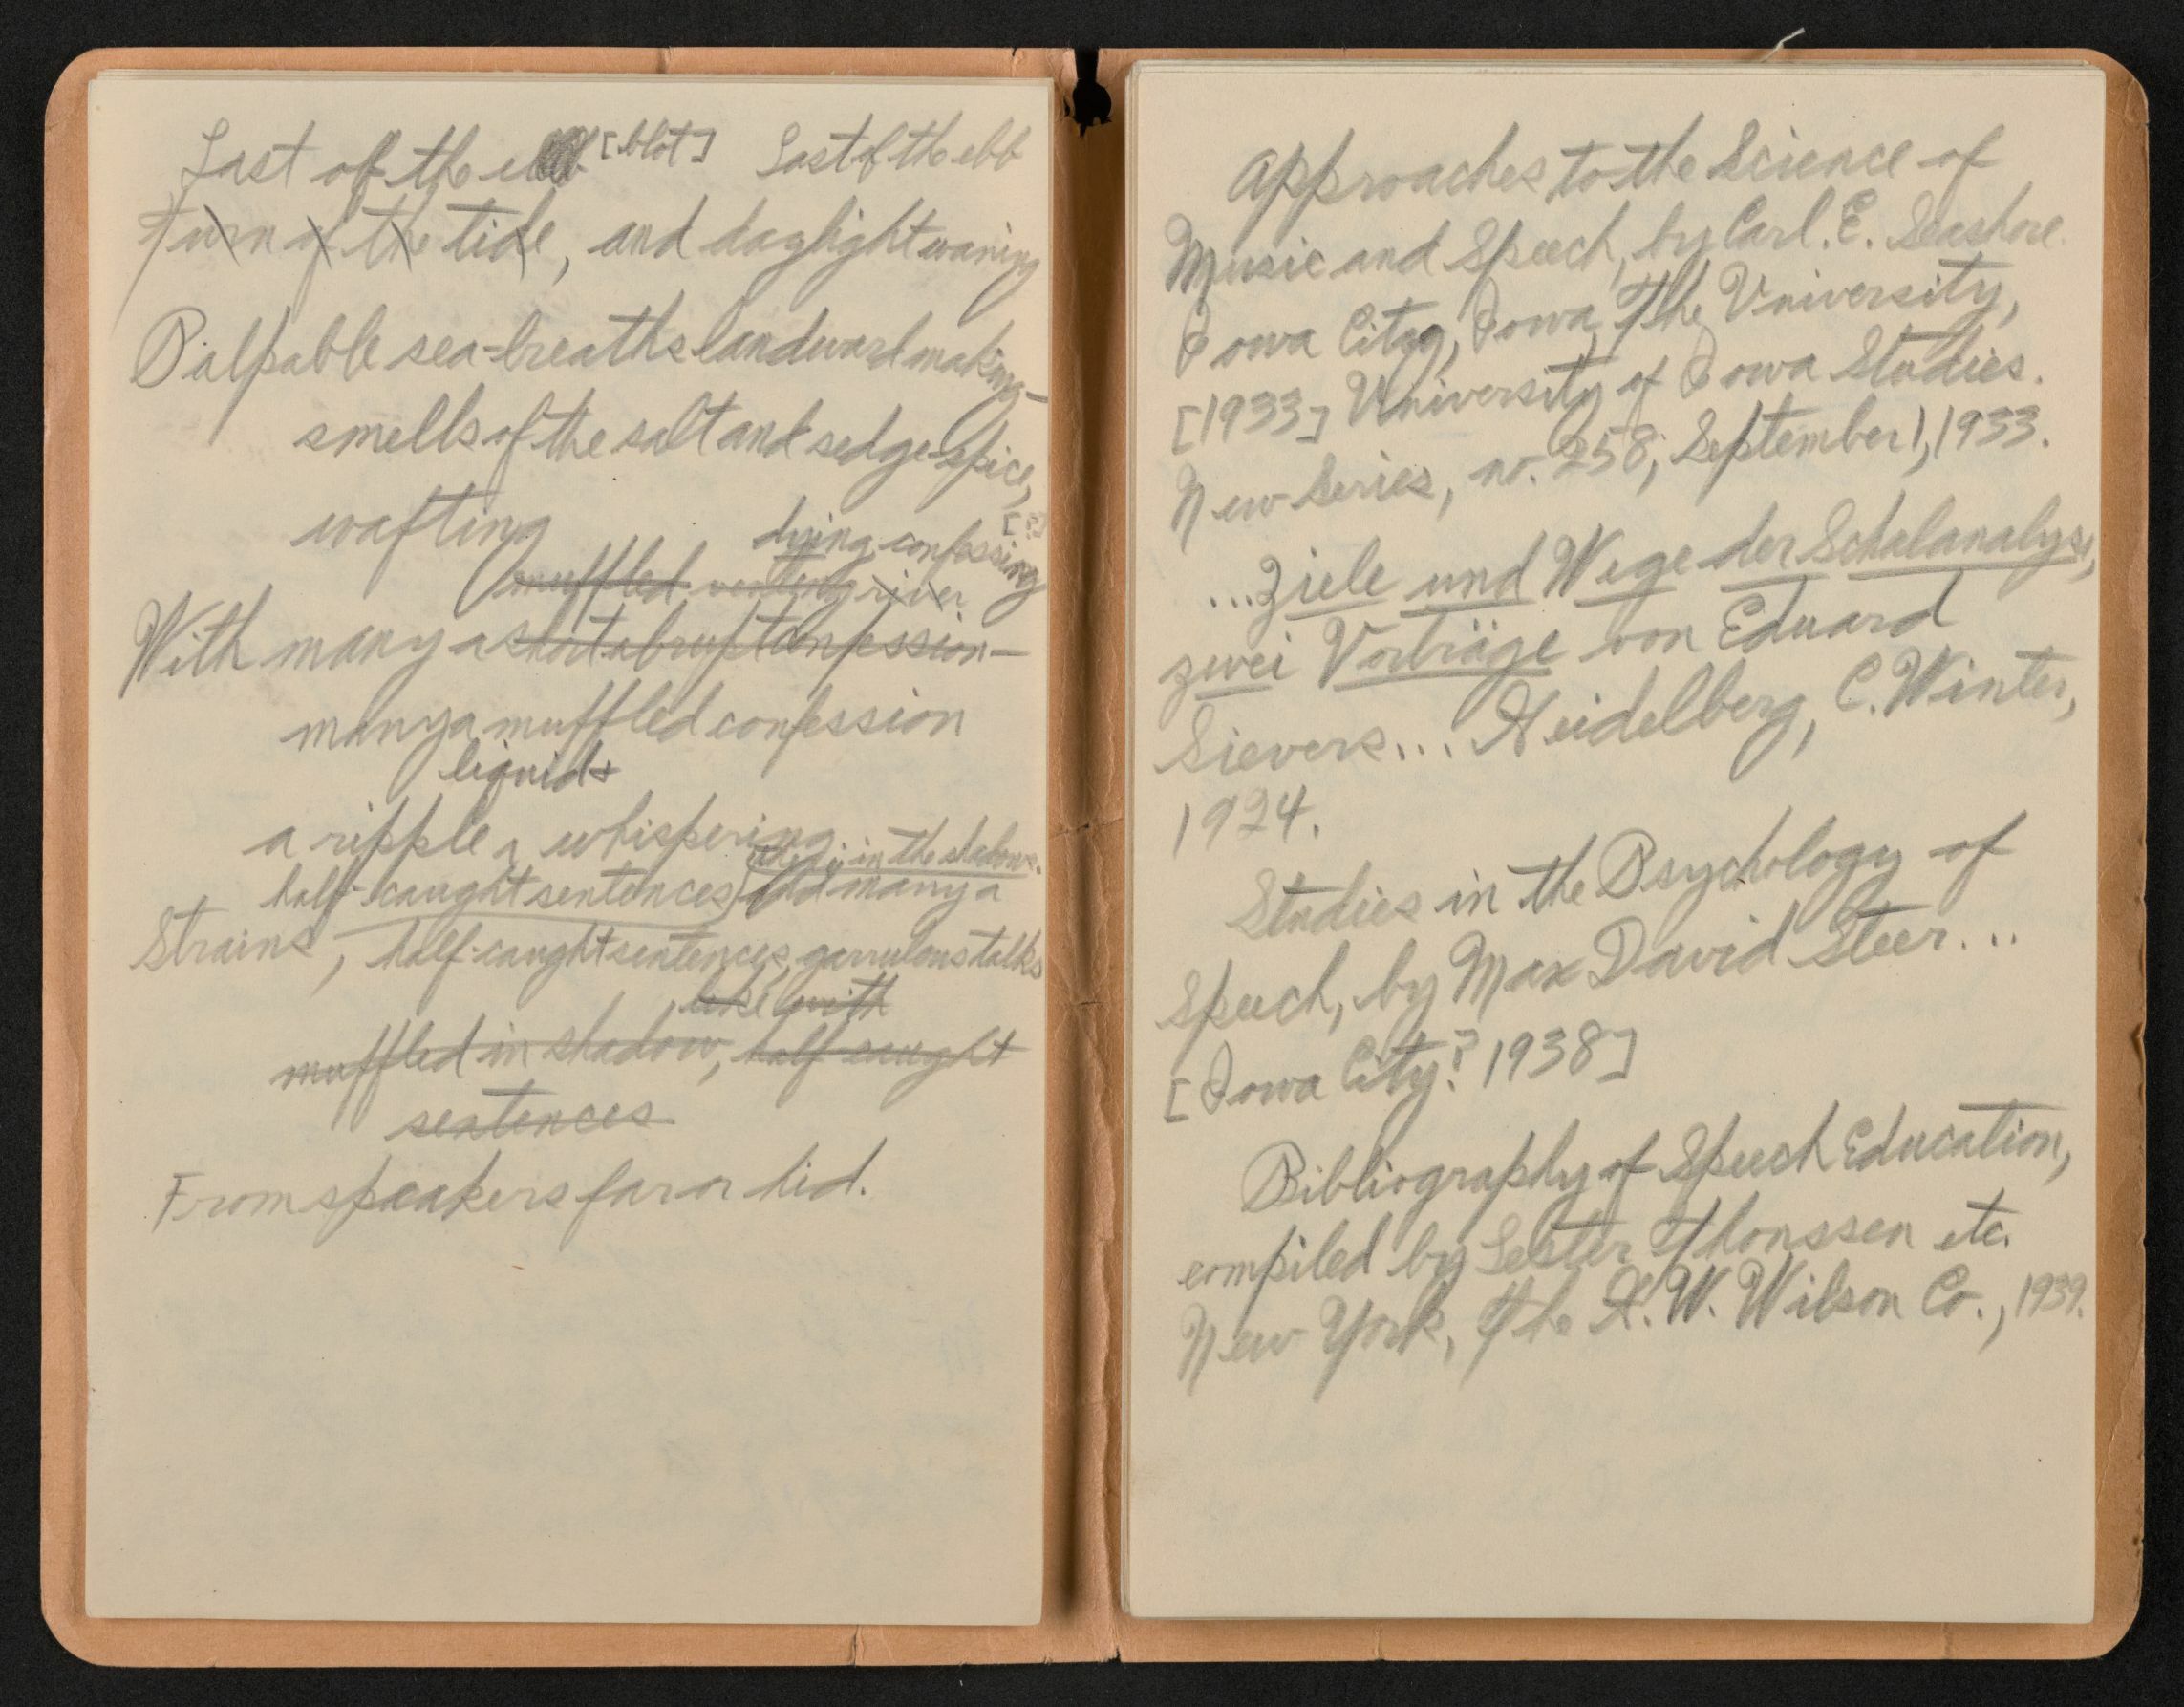 Last of the ebb [blot] Last of the ebb
Turn of the tide, and daylight waning
Palpable sea-breaths landward making–
smells of the salt and sedge-spice,
wafting
[?]
dying confessing
muffled venting river
With many a short abrupt confession–
many a muffled confession
liquids
a ripple ^ whispering
in the shadows.
half-caught sentences] Add many a
Strains, half-caught sentences, garrulous talks
like with
muffled in shadow, half caught
sentences
From speakers far or hid.
Approaches to the Science of
Music and Speech, by Carl. E. Seashore.
Iowa City, Iowa, The University,
[1933] University of Iowa Studies.
New Series, no. 258; September 1, 1933.
...Ziele und Wege der Schalanalyse,
zwei Vorträge von Eduard
Sievers... Heidelberg, C. Winter,
1924.
Studies in the Psychology of
Speech, by Max David Steer...
[Iowa City? 1938]
Bibliography of Speech Education,
compiled by Lester Thonssen etc.
New York, The H. W. Wilson Co., 1939.